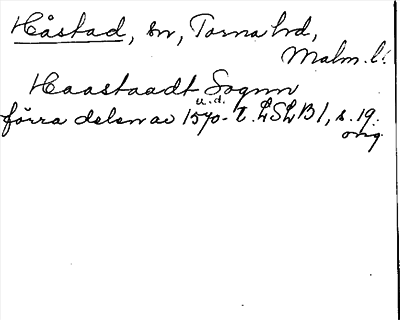 Håstad, sn, Torna hd,
Malm. l.
Haastaadt Sognn
u.d.
förra delen av 1570-t. LSLB 1, s. 19.
orig